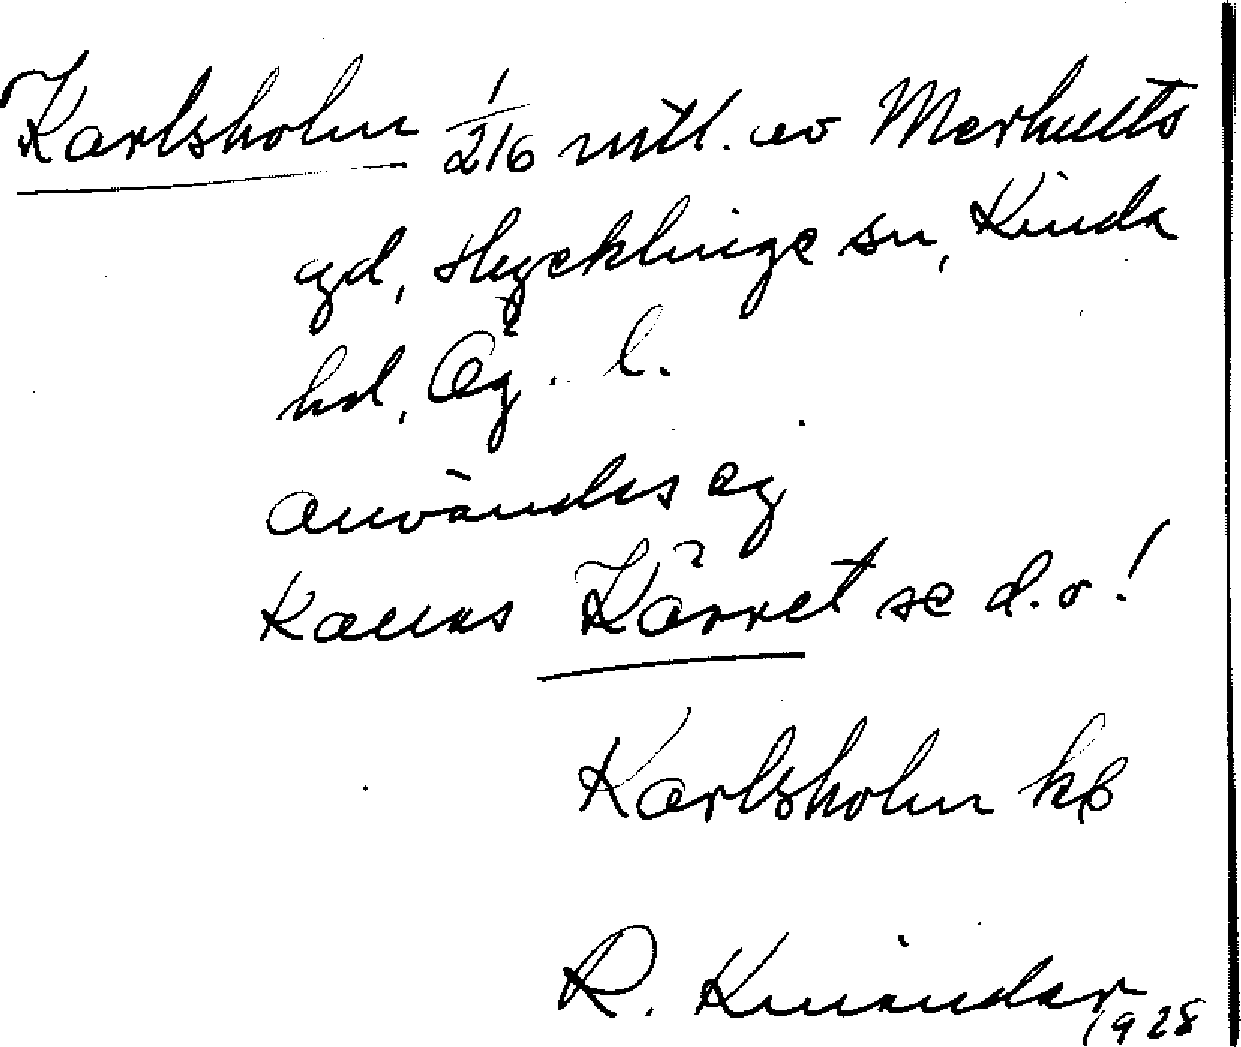 Karlsholm 1/216 mtl. av Merhults
gd, Hycklinge sn, Kinda
hd, Ög. l.
användes ej
Kallas Kärret se d.o!
Karlsholm
R. Kinander
1928